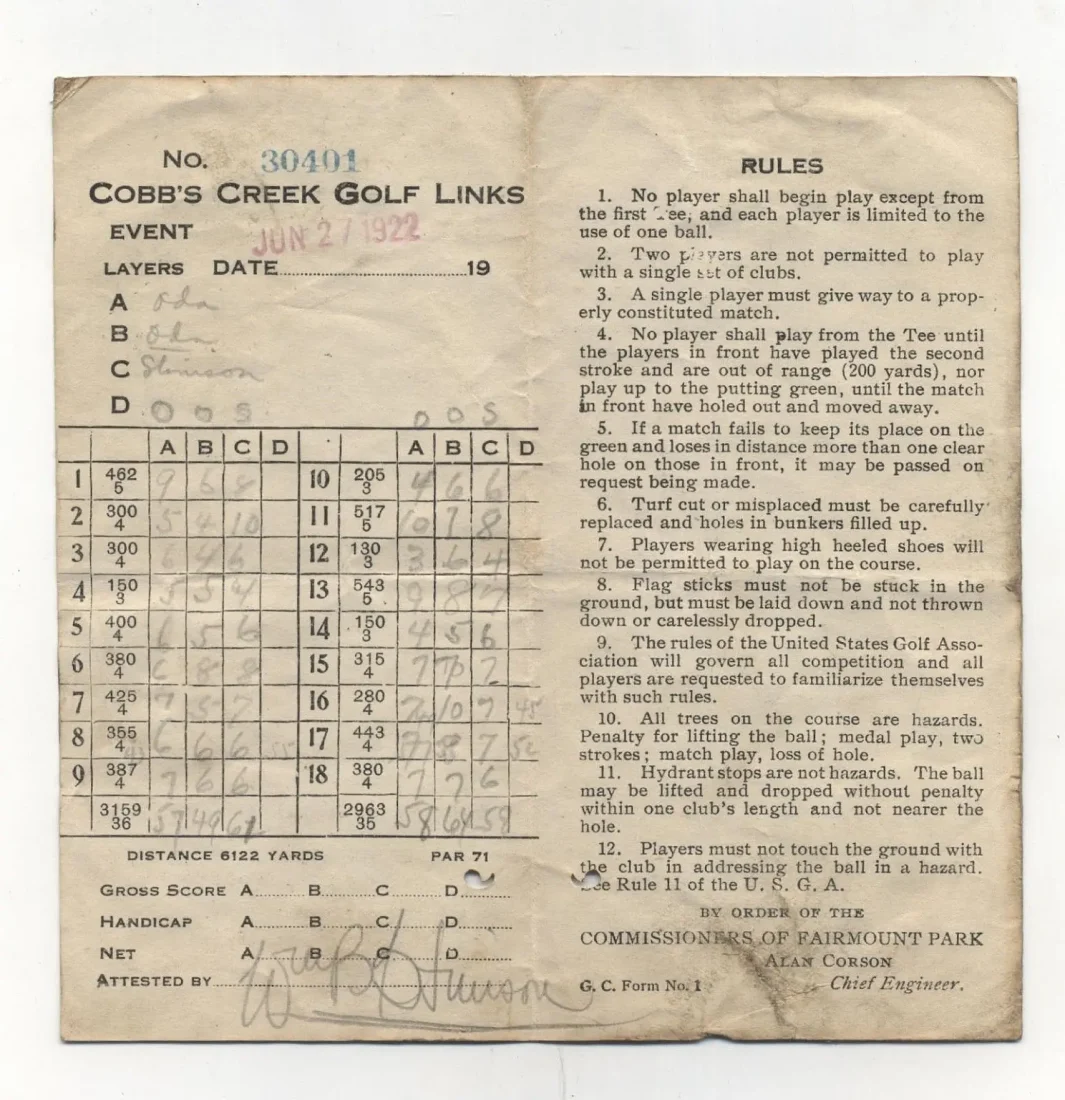 No. 30401
COBB'S CREEK GOLF LINKS
EVENT
JUN 27 1922
LAYERS DATE 19
A Oda
B Oda
C Stimson
D O O S O O S
A B C D A B C D
1 462 5 9 6 8 10 205 3 4 6 6
2 300 4 5 4 10 11 517 5 10 7 8
3 300 4 6 4 6 12 130 3 3 6 4
4 150 3 5 5 4 13 543 5 9 8 7
5 400 4 6 5 6 14 150 3 4 5 6
6 380 4 6 8 8 15 315 4 7 7 7
7 425 4 7 5 7 16 280 4 7 10 7 45
8 355 4 6 6 6 17 443 4 7 8 7 52
9 387 4 7 6 6 18 380 4 7 7 6
3159 36 57 49 61 2963 35 58 64 58
DISTANCE 6122 YARDS PAR 71
GROSS SCORE A B C D
HANDICAP A B C D
NET A B C D
ATTESTED BY Wm B Stimson
RULES
1. No player shall begin play except from
the first Tee, and each player is limited to the
use of one ball.
2. Two players are not permitted to play
with a single set of clubs.
3. A single player must give way to a prop-
erly constituted match.
4. No player shall play from the Tee until
the players in front have played the second
stroke and are out of range (200 yards), nor
play up to the putting green, until the match
in front have holed out and moved away.
5. If a match fails to keep its place on the
green and loses in distance more than one clear
hole on those in front, it may be passed on
request being made.
6. Turf cut or misplaced must be carefully
replaced and holes in bunkers filled up.
7. Players wearing high heeled shoes will
not be permitted to play on the course.
8. Flag sticks must not be stuck in the
ground, but must be laid down and not thrown
down or carelessly dropped.
9. The rules of the United States Golf Asso-
ciation will govern all competition and all
players are requested to familiarize themselves
with such rules.
10. All trees on the course are hazards.
Penalty for lifting the ball; medal play, two
strokes; match play, loss of hole.
11. Hydrant stops are not hazards. The ball
may be lifted and dropped without penalty
within one club's length and not nearer the
hole.
12. Players must not touch the ground with
the club in addressing the ball in a hazard.
See Rule 11 of the U. S. G. A.
BY ORDER OF THE
COMMISSIONERS OF FAIRMOUNT PARK
ALAN CORSON
G. C. Form No. 1 Chief Engineer.